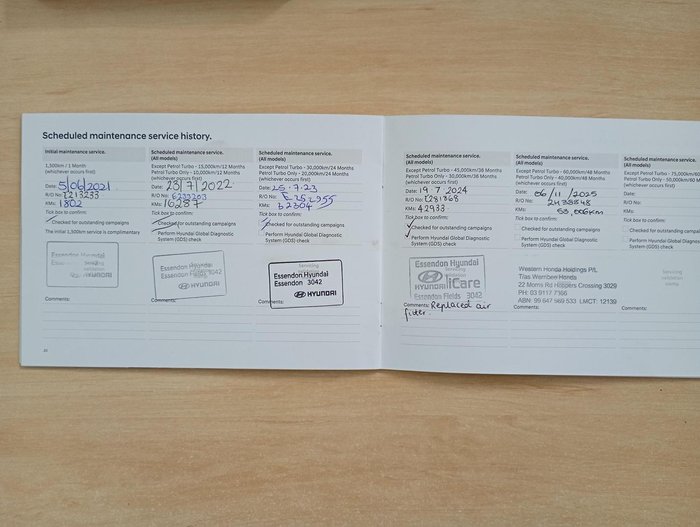 Scheduled maintenance service history.
Initial maintenance service.
1,500km / 1 Month
(whichever occurs first)
Date: 5/06/2021
R/O No: 1213233
KMs: 1802
Tick box to confirm:
Checked for outstanding campaigns
The initial 1,500km service is complimentary
HYUNDAI
Comments:
20
Scheduled maintenance service.
(All models)
Except Petrol Turbo - 15,000km/12 Months
Petrol Turbo Only - 10,000km/12 Months
(whichever occurs first)
Date: 23/7/2022
R/O No:
KMs: 16287
Tick box to confirm:
Checked for outstanding campaigns
Perform Hyundai Global Diagnostic
System (GDS) check
Essendon Hyundai
Essendon Fields 3042
HYUNDAI
Comments:
Scheduled maintenance service.
(All models)
Except Petrol Turbo - 30,000km/24 Months
Petrol Turbo Only - 20,000km/24 Months
(whichever occurs first)
Date: 25.7.23
R/O No:
KMs: 32304
Tick box to confirm:
Checked for outstanding campaigns
Perform Hyundai Global Diagnostic
System (GDS) check
Essendon Hyundai
Essendon 3042
HYUNDAI
Comments:
Scheduled maintenance service.
(All models)
Except Petrol Turbo - 45,000km/36 Months
Petrol Turbo Only - 30,000km/36 Months
(whichever occurs first)
Date: 19.7.2024
R/O No: 1281368
KMs: 42933
Tick box to confirm:
Checked for outstanding campaigns
Perform Hyundai Global Diagnostic
System (GDS) check
Essendon Hyundai
HYUNDAI iCare
Essendon Fields 3042
Comments: Replaced air
filter.
Scheduled maintenance service.
(All models)
Except Petrol Turbo - 60,000km/48 Months
Petrol Turbo Only - 40,000km/48 Months
(whichever occurs first)
Date: 06/11/2025
R/O No:
KMs:
Tick box to confirm:
Checked for outstanding campaigns
Perform Hyundai Global Diagnostic
System (GDS) check
Western Honda Holdings P/L
Tras Werribee Honda
22 Morris Rd Hoppers Crossing 3029
PH: 03 9117 7166
ABN: 99 647 569 533 LMCT: 12139
Comments:
Scheduled maintenance service.
(All models)
Except Petrol Turbo - 75,000km/60
Petrol Turbo Only - 50,000km/60
(whichever occurs first)
Date:
R/O No:
KMs:
Tick box to confirm:
Checked for outstanding
Perform Hyundai Global
System (GDS) check
Comments: